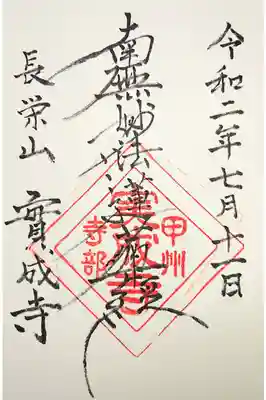 令和二年七月十一日
南無妙法蓮華経
長栄山
實成寺
甲州
寺部